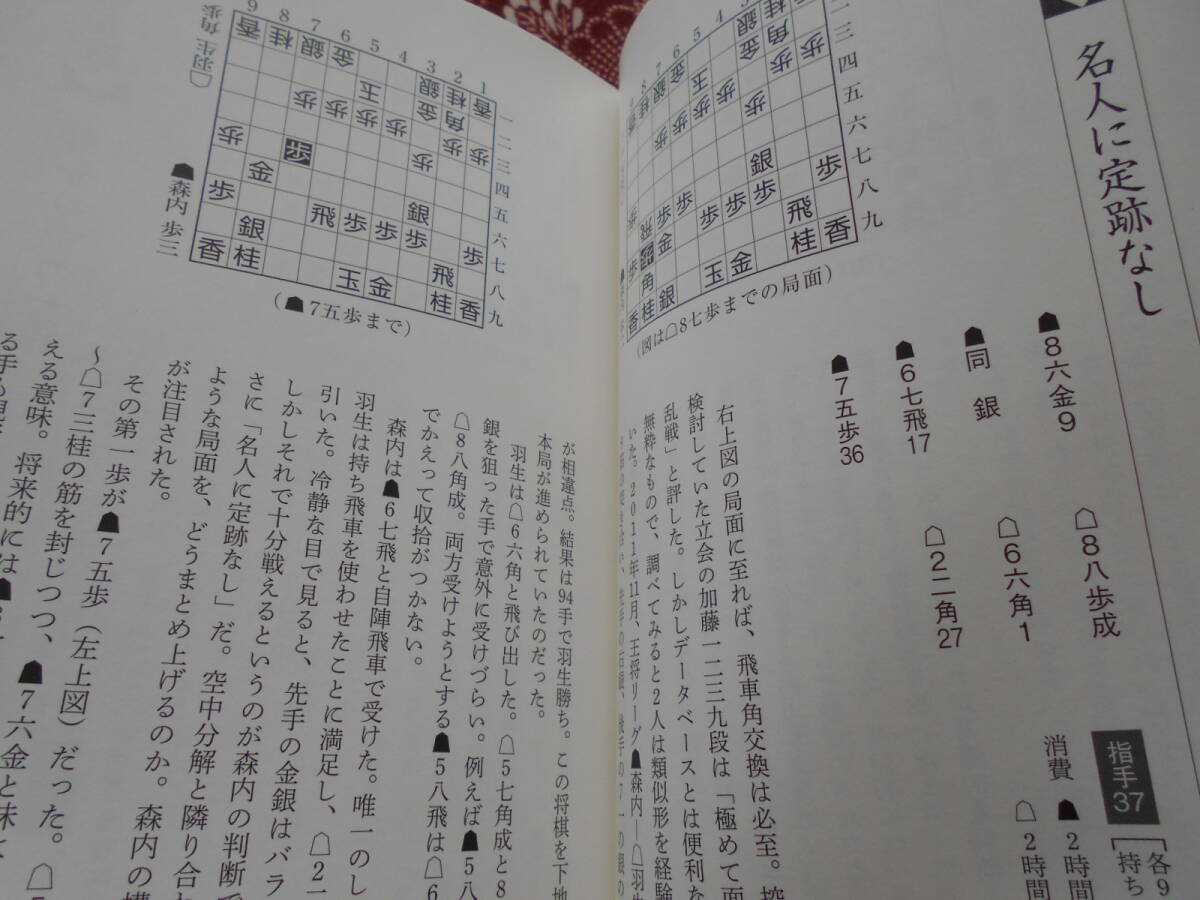 名人に定跡なし
☗8六金9
☖8八歩成
☗同 銀
☖6六角1
☗6七飛17
☖2二角27
☗7五歩36
指手37
[各9
持ち
消費
☗2時間
☖2時間
(図は☖8七歩までの局面)
右上図の局面に至れば、飛車角交換は必至。控
検討していた立会の加藤一二三九段は「極めて面
乱戦」と評した。しかしデータベースとは便利な
無粋なもので、調べてみると2人は類似形を経験
いた。2011年11月、王将リーグ☗森内―☖羽生
☖羽生 角歩
9 8 7 6 5 4 3 2 1
一二三四五六七八九
☗森内 歩三
(☗7五歩まで)
が相違点。結果は94手で羽生勝ち。この将棋を下地
本局が進められていたのだった。
羽生は☖6六角と飛び出した。☖5七角成と8
銀を狙った手で意外に受けづらい。例えば☗5八
☖8八角成。両方受けようとする☗5八飛は☖6
でかえって収拾がつかない。
森内は☗6七飛と自陣飛車で受けた。唯一のし
羽生は持ち飛車を使わせたことに満足し、☖2二
引いた。冷静な目で見ると、先手の金銀はバラ
しかしそれで十分戦えるというのが森内の判断で
さに「名人に定跡なし」だ。空中分解と隣り合わ
ような局面を、どうまとめ上げるのか。森内の構
が注目された。
その第一歩が☗7五歩(左上図)だった。☖5
〜☖7三桂の筋を封じつつ、☗7六金と未
える意味。将来的には☗